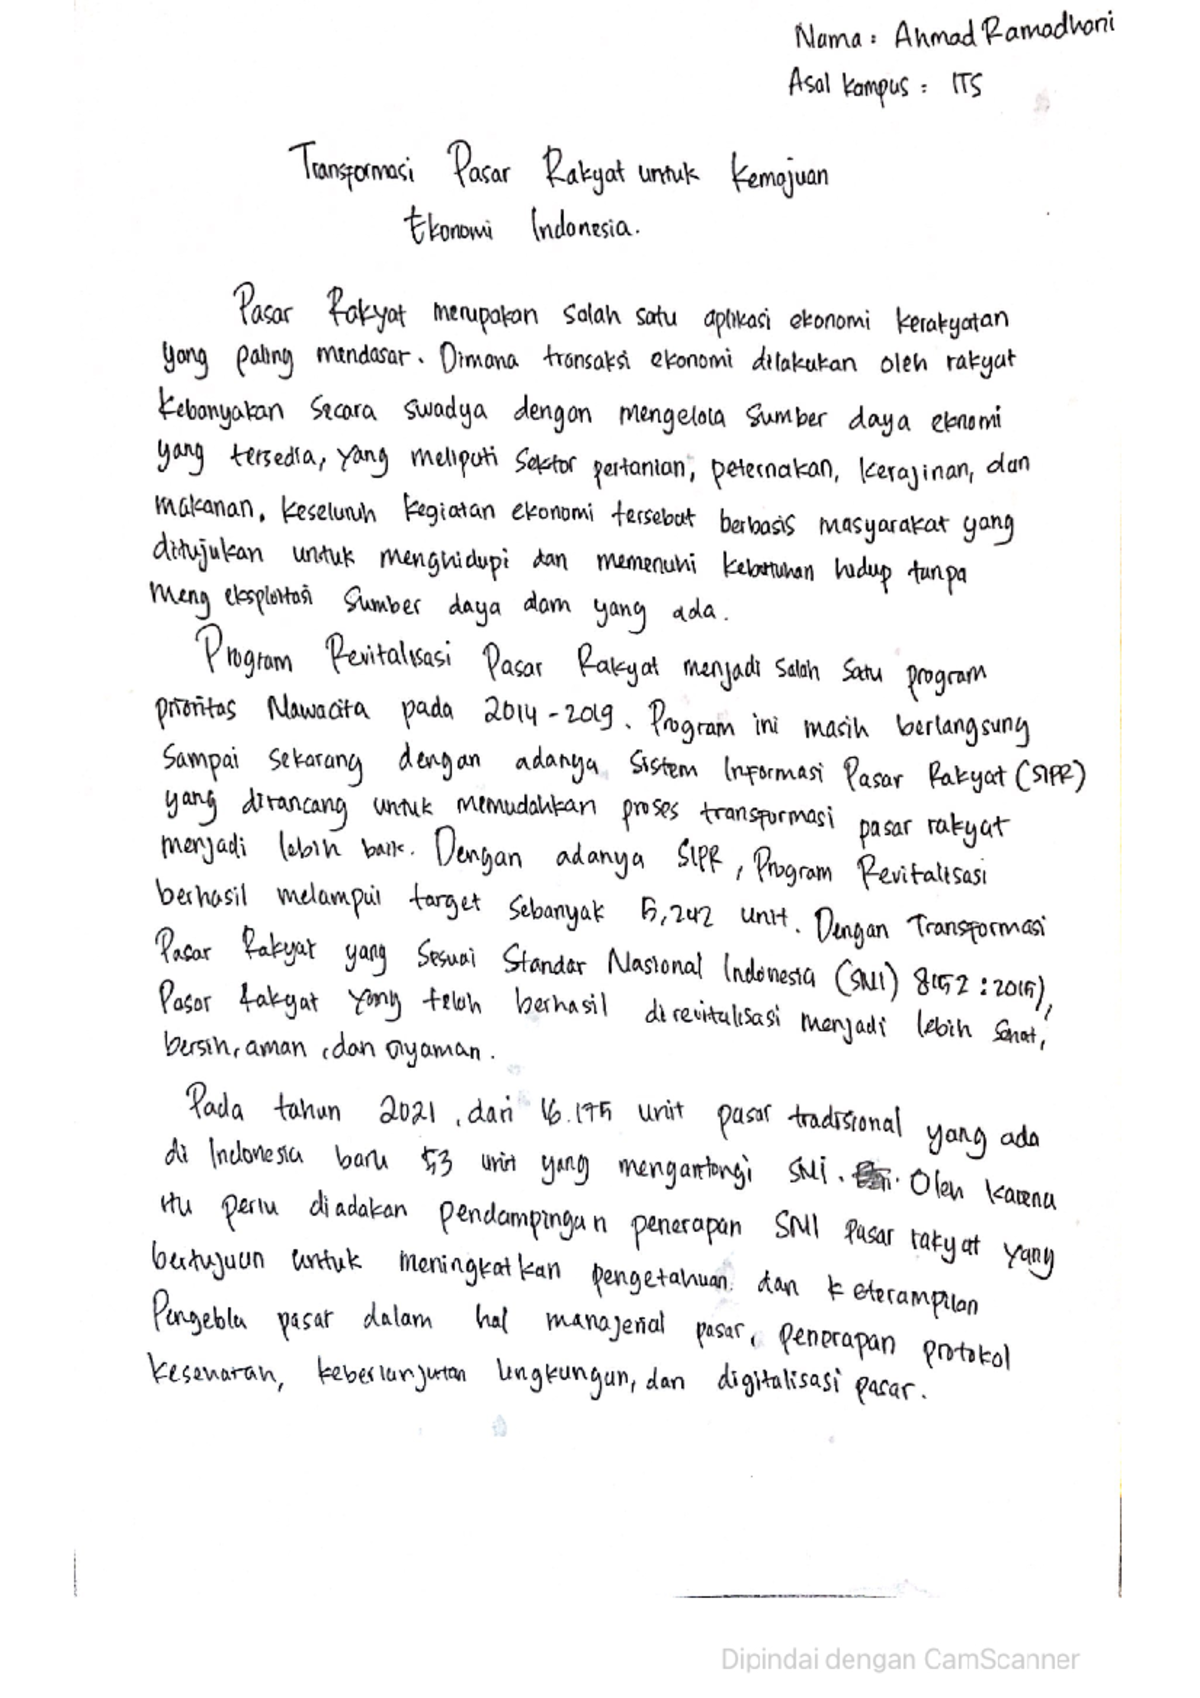 Nama : Ahmad Ramadhani
Asal Kampus : ITS
Transformasi Pasar Rakyat untuk Kemajuan
Ekonomi Indonesia.
Pasar Rakyat merupakan salah satu aplikasi ekonomi kerakyatan
yang paling mendasar. Dimana transaksi ekonomi dilakukan oleh rakyat
kebanyakan secara swadya dengan mengelola sumber daya eknomi
yang tersedia, yang meliputi sektor pertanian, peternakan, kerajinan, dan
makanan, keseluruh kegiatan ekonomi tersebut berbasis masyarakat yang
ditujukan untuk menghidupi dan memenuhi kebutuhan hidup tanpa
meng eksploitasi sumber daya alam yang ada.
Program Revitalisasi Pasar Rakyat menjadi salah satu program
prioritas Nawacita pada 2014-2019. Program ini masih berlangsung
sampai sekarang dengan adanya Sistem Informasi Pasar Rakyat (SIPR)
yang dirancang untuk memudahkan proses transformasi pasar rakyat
menjadi lebih baik. Dengan adanya SIPR, Program Revitalisasi
berhasil melampui target sebanyak 5,242 unit. Dengan Transformasi
Pasar Rakyat yang Sesuai Standar Nasional Indonesia (SNI) 8152 : 2015),
Pasar Rakyat yang telah berhasil direvitalisasi menjadi lebih sehat,
bersih, aman, dan nyaman.
Pada tahun 2021, dari 16.175 unit pasar tradisional yang ada
di Indonesia baru 53 unit yang mengantongi SNI. Oleh karena
itu perlu diadakan pendampingan penerapan SNI Pasar rakyat yang
bertujuan untuk meningkatkan pengetahuan dan keterampilan
Pengelola pasar dalam hal manajerial pasar, penerapan protokol
kesehatan, keberlanjutan lingkungan, dan digitalisasi pasar.
Dipindai dengan CamScanner